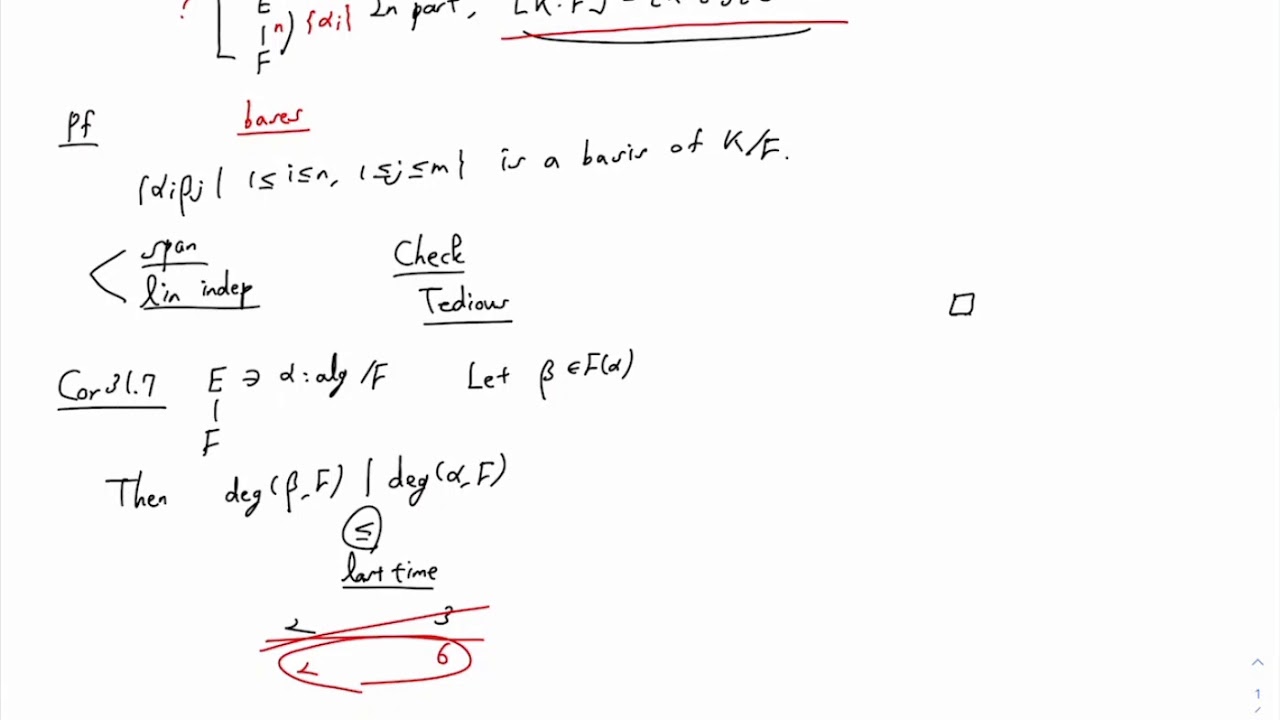 ? E
n) {αi} In part,
F
Pf bases
{αiβj | 1≤i≤n, 1≤j≤m} is a basis of K/F.
span Check
lin indep Tedious
□
Cor 31.7 E ∋ α: alg /F Let β ∈ F(α)
F
Then deg(β, F) | deg(α, F)
≤
last time
2 3
2 6
1